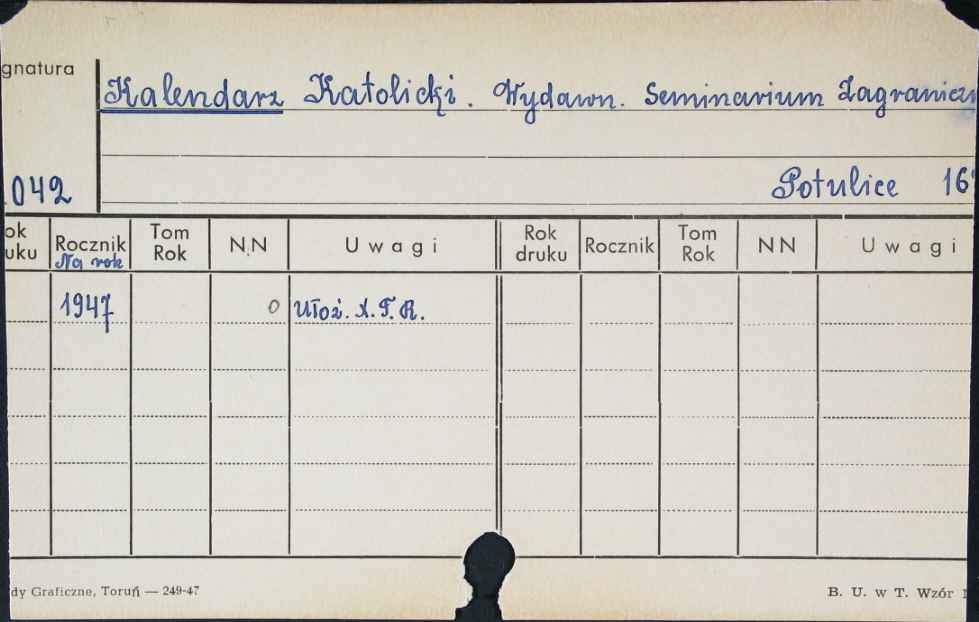 gnatura
Kalendarz Katolicki. Wydawn. Seminarium Zagranicz
042
Potulice 16
ok uku Rocznik Na rok Tom Rok N.N Uwagi Rok druku Rocznik Tom Rok NN Uwagi
1947 0 Ułoż. X. F. R.
dy Graficzne, Toruń — 249-47 B. U. w T. Wzór